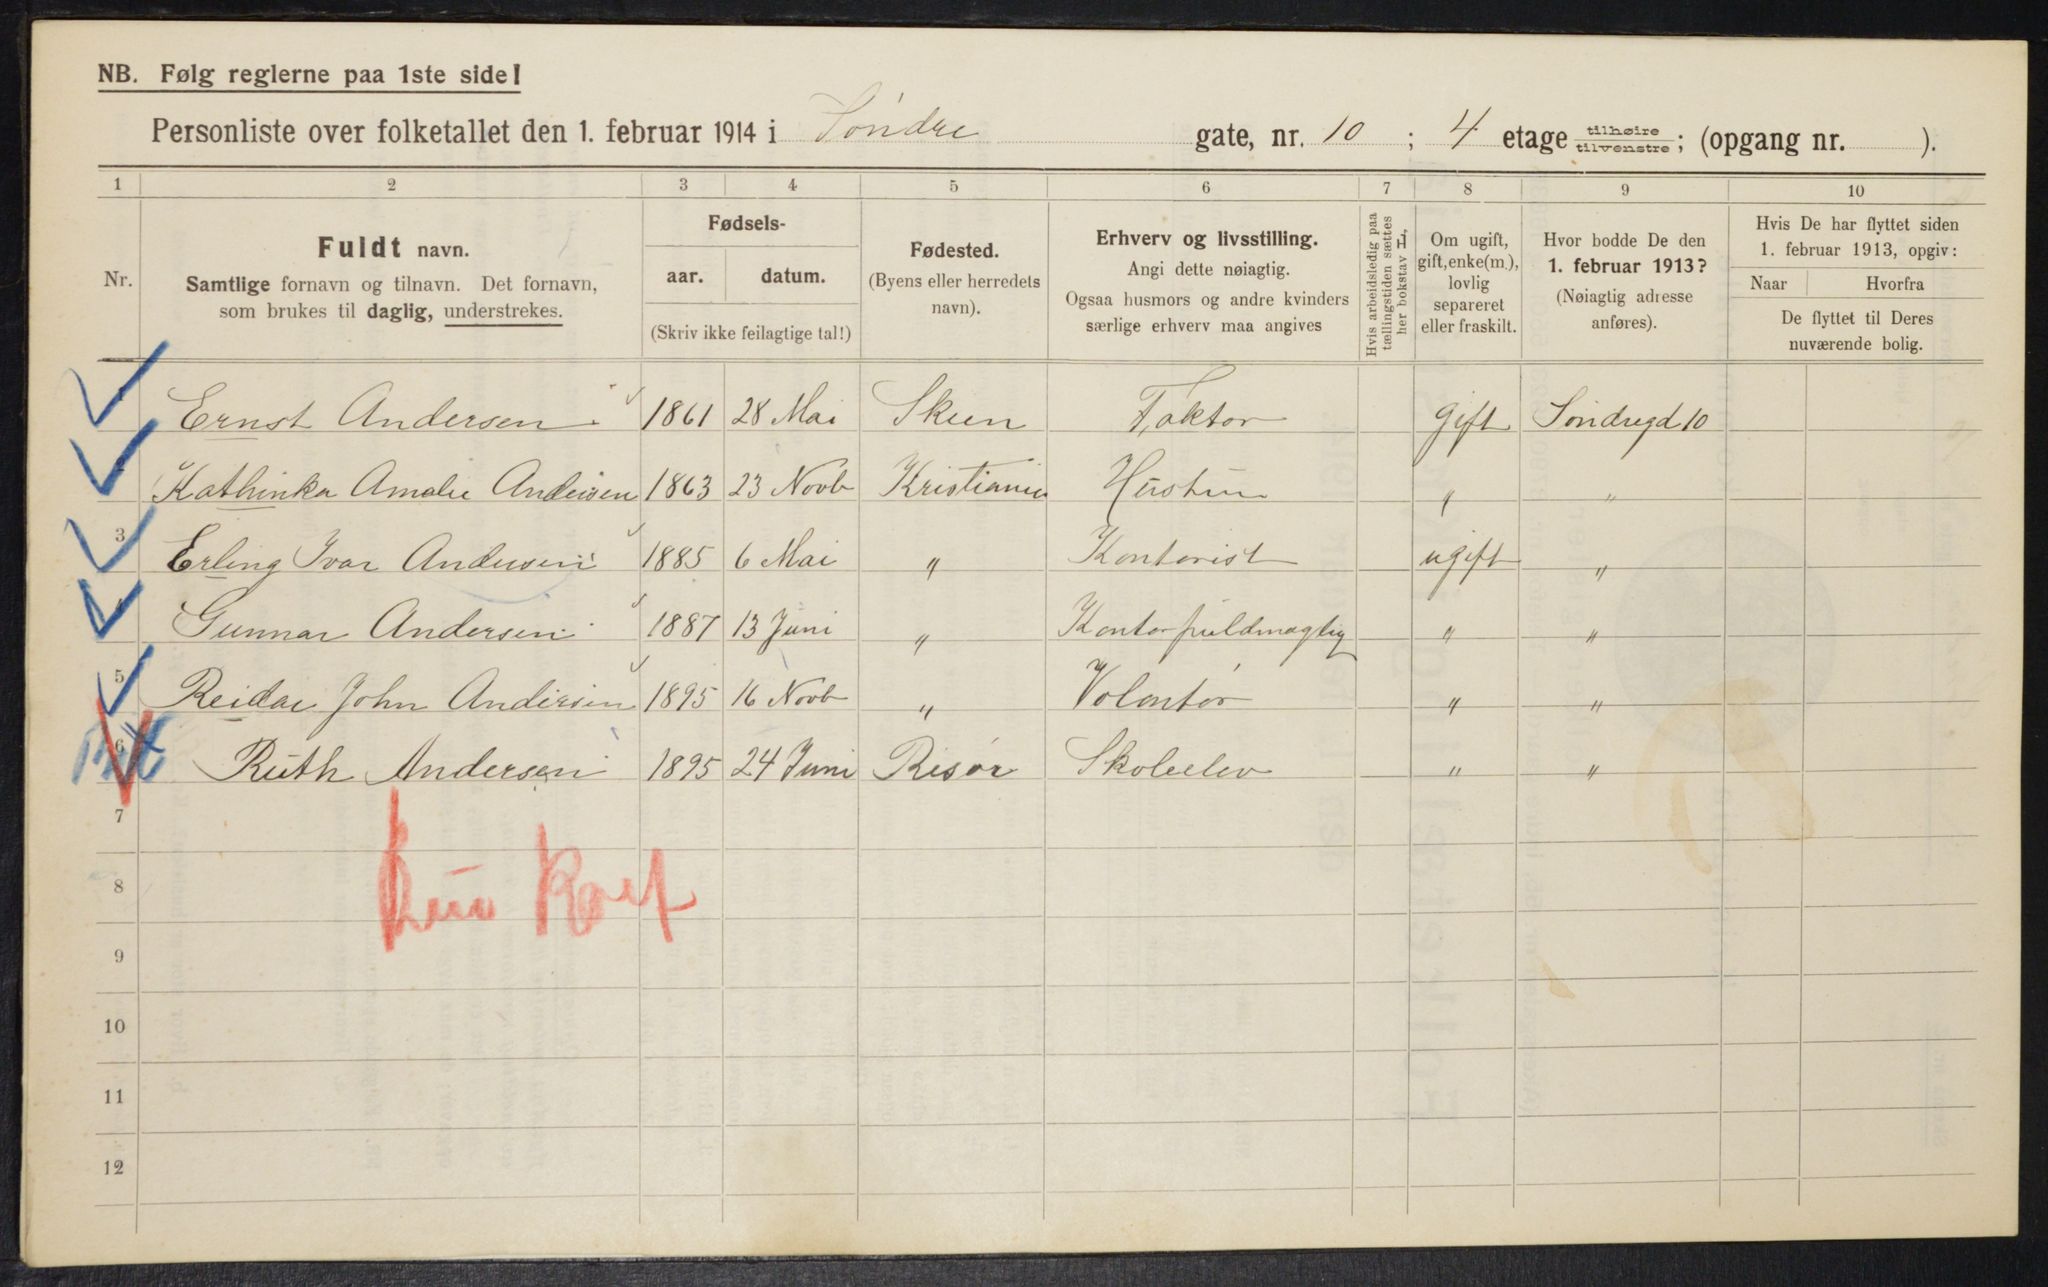 NB. Følg reglerne paa 1ste side!
Personliste over folketallet den 1. februar 1914 i Søndre gate, nr. 10 ; 4 etage tilhøire tilvenstre ; (opgang nr. ).
1 2 3 4 5 6 7 8 9 10
Nr.
Fuldt navn.
Samtlige fornavn og tilnavn. Det fornavn,
som brukes til daglig, understrekes.
Fødsels-
aar. datum.
(Skriv ikke feilagtige tal!)
Fødested.
(Byens eller herredets
navn).
Erhverv og livsstilling.
Angi dette nøiagtig.
Ogsaa husmors og andre kvinders
særlige erhverv maa angives
Hvis arbeidsledig paa
tællingstiden sættes
her bokstav L.
Om ugift,
gift, enke(m.),
lovlig
separeret
eller fraskilt.
Hvor bodde De den
1. februar 1913?
(Nøiagtig adresse
anføres).
Hvis De har flyttet siden
1. februar 1913, opgiv:
Naar Hvorfra
De flyttet til Deres
nuværende bolig.
1 Ernst Andersen 1861 28 Mai Skien Faktor gift Søndregd 10
2 Kathinka Amalie Andersen 1863 23 Novb Kristiania Hustru " "
3 Erling Ivar Andersen 1885 6 Mai " Kontorist ugift "
4 Gunnar Andersen 1887 13 Juni " Kontorfuldmægtig " "
5 Reidar John Andersen 1895 16 Novb " Volontør " "
6 Ruth Andersen 1895 24 Juni Risør Skoleelev " "
7
8
9
10
11
12